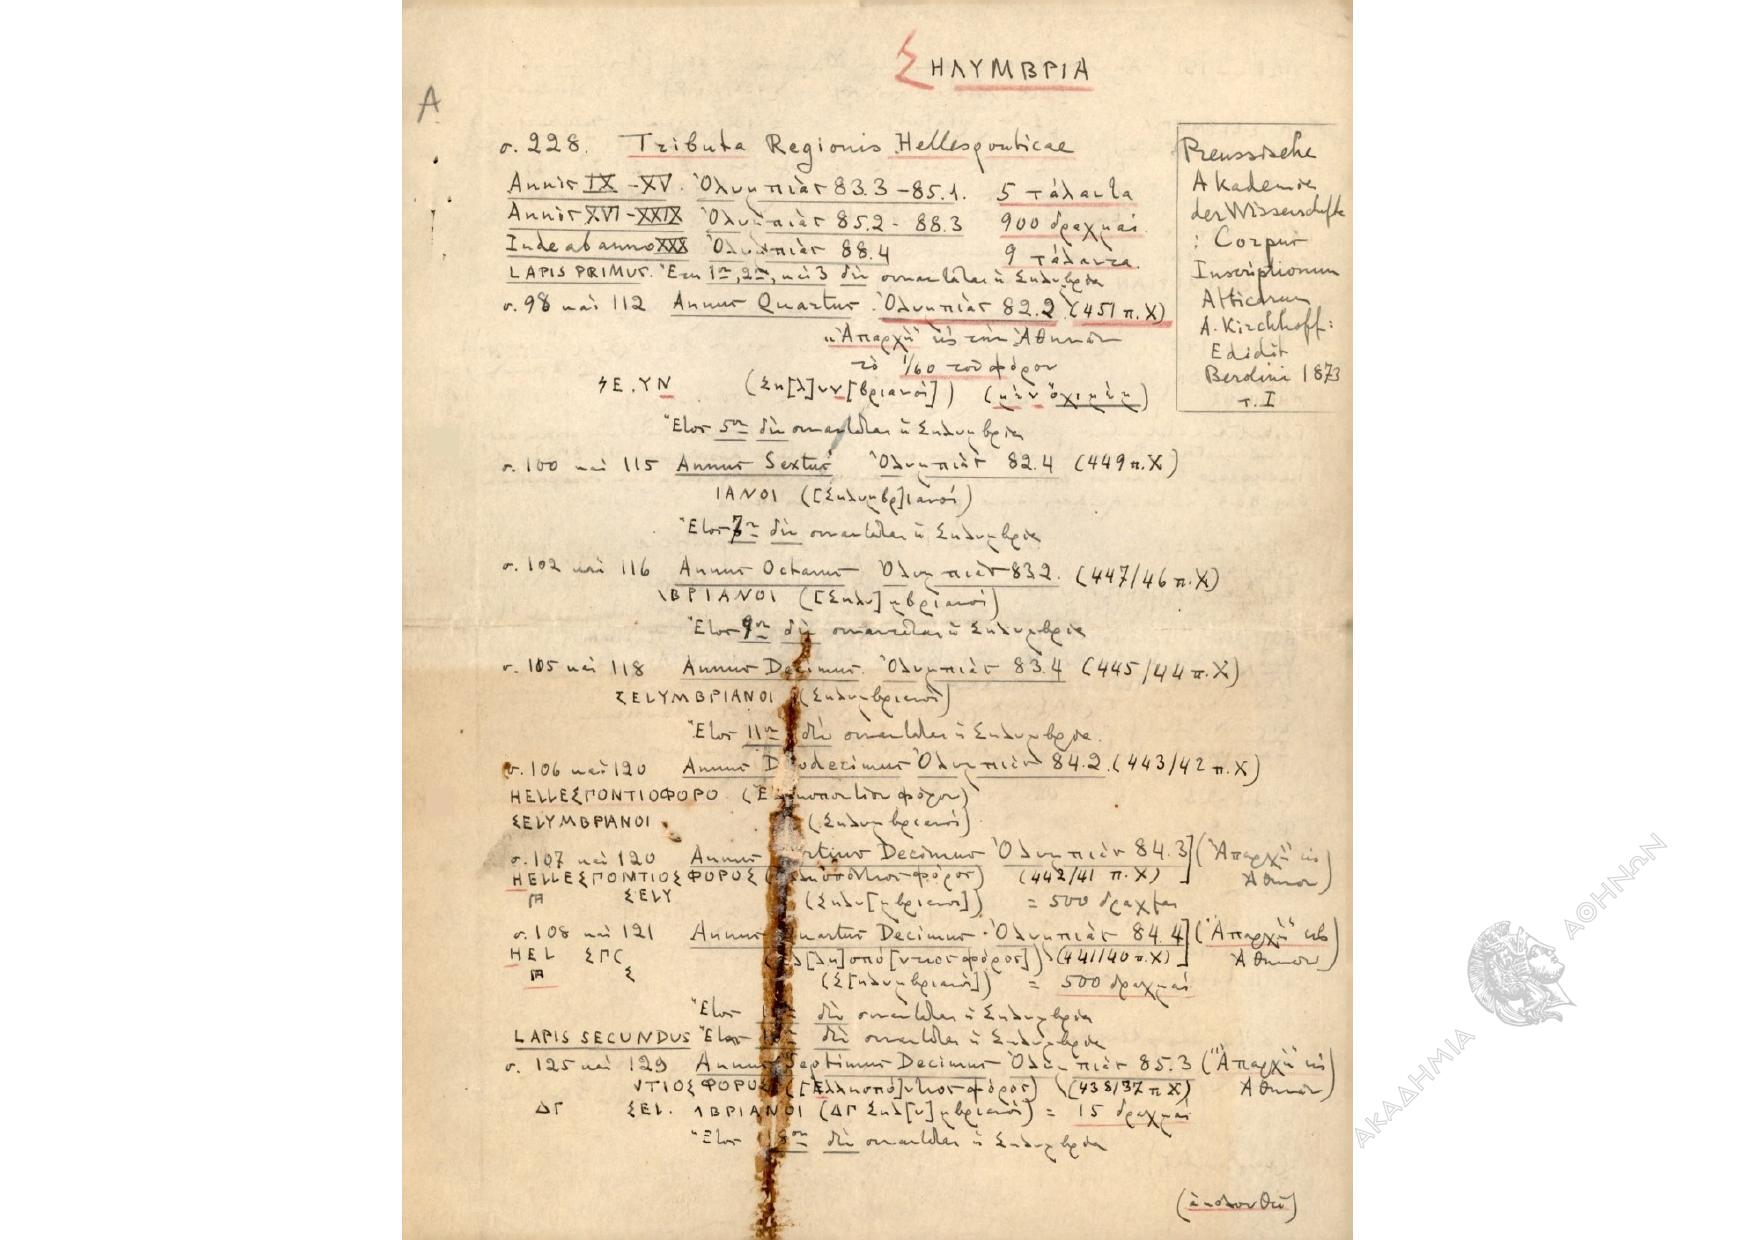 ΣΗΛΥΜΒΡΙΑ
A
σ. 228. Tributa Regionis Hellesponticae
Annis IX - XV. Ὀλυμπιὰς 83.3 - 85.1. 5 τάλαντα
Annis XVI - XXIX Ὀλυμπιὰς 85.2 - 88.3 900 δραχμαί.
Inde ab anno XXX Ὀλυμπιὰς 88.4 9 τάλαντα.
LAPIS PRIMUS. Ἔτη 1ον, 2ον, καὶ 3 δὲν συναντᾶται ἡ Σηλυμβρία
σ. 98 καὶ 112 Annus Quartus. Ὀλυμπιὰς 82.2 (451 π.Χ)
"Ἀπαρχὴ" εἰς τὴν Ἀθηνᾶν
τὸ 1/60 τοῦ φόρου
ϟΕ.ΥΝ (Ση[λ]υν[βριανοί]) (μὲ ν ὄχι μὲ μ)
Ἔτος 5ον δὲν συναντᾶται ἡ Σηλυμβρία
σ. 100 καὶ 115 Annus Sextus Ὀλυμπιὰς 82.4 (449 π.Χ)
ΙΑΝΟΙ ([Σηλυμβρ]ιανοί)
Ἔτος 7ον δὲν συναντᾶται ἡ Σηλυμβρία
σ. 102 καὶ 116 Annus Octavus Ὀλυμπιὰς 83.2. (447/46 π.Χ)
\ΒΡΙΑΝΟΙ ([Σηλυ]μβριανοί)
Ἔτος 9ον δὲν συναντᾶται ἡ Σηλυμβρία
σ. 105 καὶ 118 Annus Decimus. Ὀλυμπιὰς 83.4 (445/44 π.Χ)
ΣΕLΥΜΒΡΙΑΝΟΙ (Σηλυμβριανοί)
Ἔτος 11ον δὲν συναντᾶται ἡ Σηλυμβρία.
σ. 106 καὶ 120 Annus Duodecimus Ὀλυμπιὰς 84.2. (443/42 π.Χ)
ΗΕLLΕΣΠΟΝΤΙΟΦΟΡΟ (Ἑλλησποντίου φόρου)
ΣΕLΥΜΒΡΙΑΝΟΙ (Σηλυμβριανοί)
σ. 107 καὶ 120 Annus Tertius Decimus Ὀλυμπιὰς 84.3] ("Ἀπαρχὴ" εἰς
ΗΕLLΕΣΠΟΝΤΙΟΣ ΦΟΡΟΣ (Ἑλλησπόντιος φόρος) (442/41 π.Χ)] Ἀθηνᾶν)
ΣΕLΥ (Σηλυ[μβριανοί]) = 500 δραχμαί
σ. 108 καὶ 121 Annus Quartus Decimus. Ὀλυμπιὰς 84.4] ("Ἀπαρχὴ" εἰς
ΗΕL ΣΠΟ (Ἑλ[λη]σπό[ντιος φόρος]) (441/40 π.Χ)] Ἀθηνᾶν)
Σ (Σ[ηλυμβριανοί]) = 500 δραχμαί
Ἔτος δὲν συναντᾶται ἡ Σηλυμβρία
LAPIS SECUNDUS Ἔτος δὲν συναντᾶται ἡ Σηλυμβρία
σ. 125 καὶ 129 Annus Septimus Decimus Ὀλυμπιὰς 85.3 ("Ἀπαρχὴ" εἰς
ΝΤΙΟΣ ΦΟΡΟΣ ([Ἑλλησπό]ντιος φόρος) (438/37 π.Χ) Ἀθηνᾶν)
ΔΓ ΣΕL. \ΒΡΙΑΝΟΙ (ΔΓ Σηλ[υ]μβριανοί) = 15 δραχμαί
Ἔτος 18ον δὲν συναντᾶται ἡ Σηλυμβρία
(ἀκολουθεῖ)
Preussische
Akademie
der Wissenschafte
: Corpus
Inscriptionum
Atticarum
A. Kirchhoff:
Edidit
Berolini 1873
τ. I
ΑΚΑΔΗΜΙΑ ΑΘΗΝΩΝ